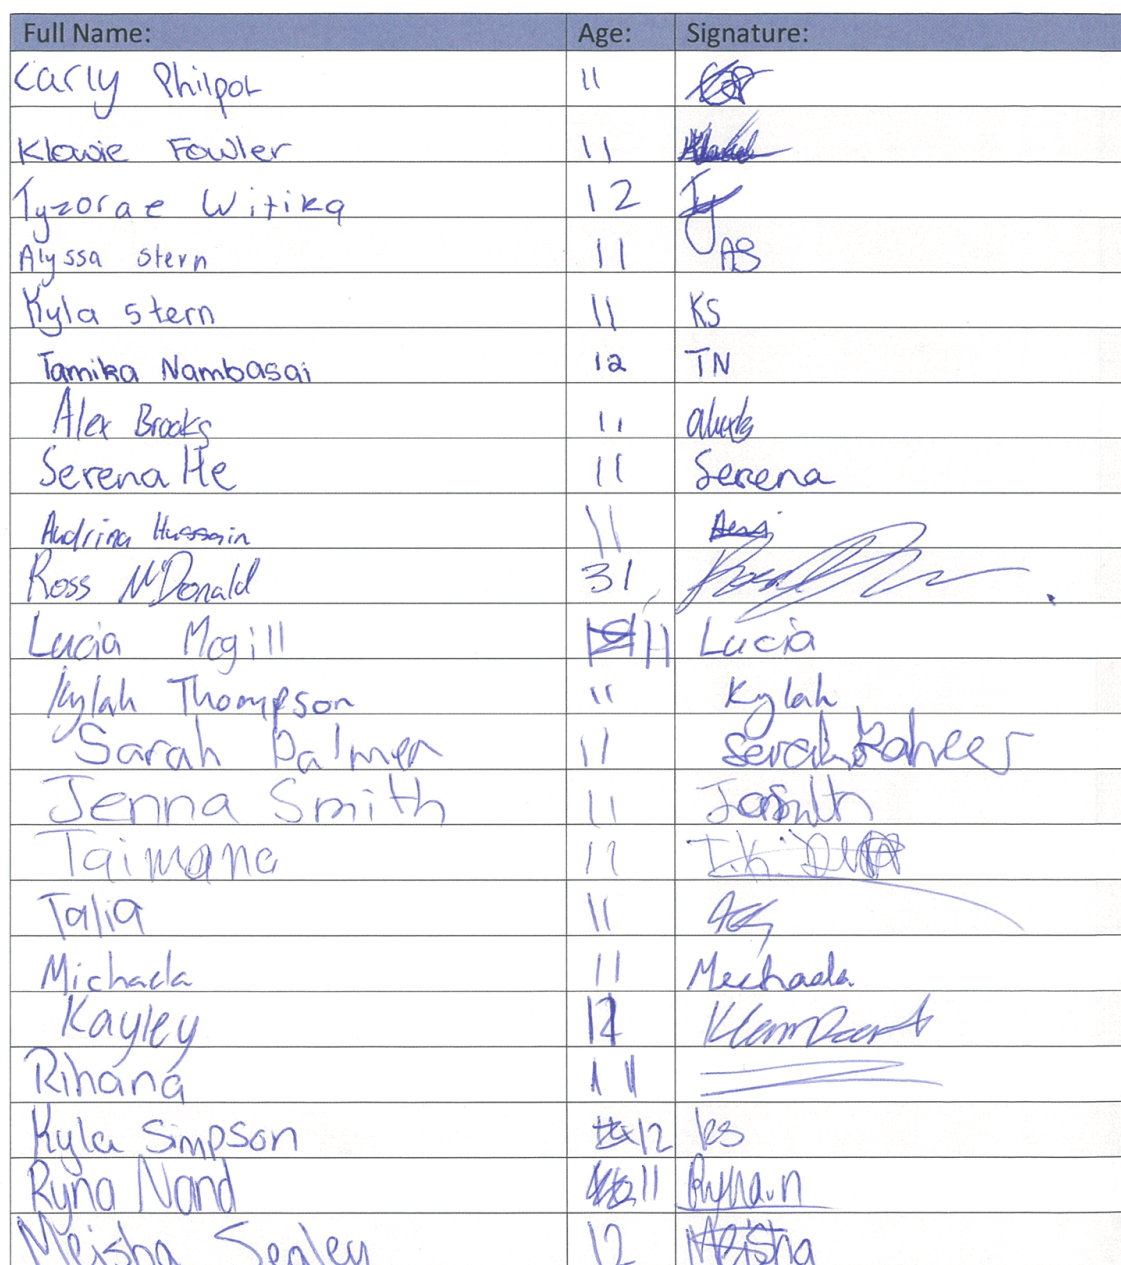 Full Name: Age: Signature:
Carly Philpot 11
Klowie Fowler 11
Tyzorae Witika 12 Ty
Alyssa Stern 11 AS
Kyla Stern 11 KS
Tamika Nambasai 12 TN
Alex Brooks 11
Serena He 11 Serena
Audrina Hussain 11
Ross McDonald 31
Lucia Mcgill 11 Lucia
Kylah Thompson 11 Kylah
Sarah Palmer 11
Jenna Smith 11
Taimana 11
Talia 11
Michaela 11
Kayley 12
Rihana 11
Kyla Simpson 12 ks
Ryna Nand 11
Meisha Sealey 12 Meisha